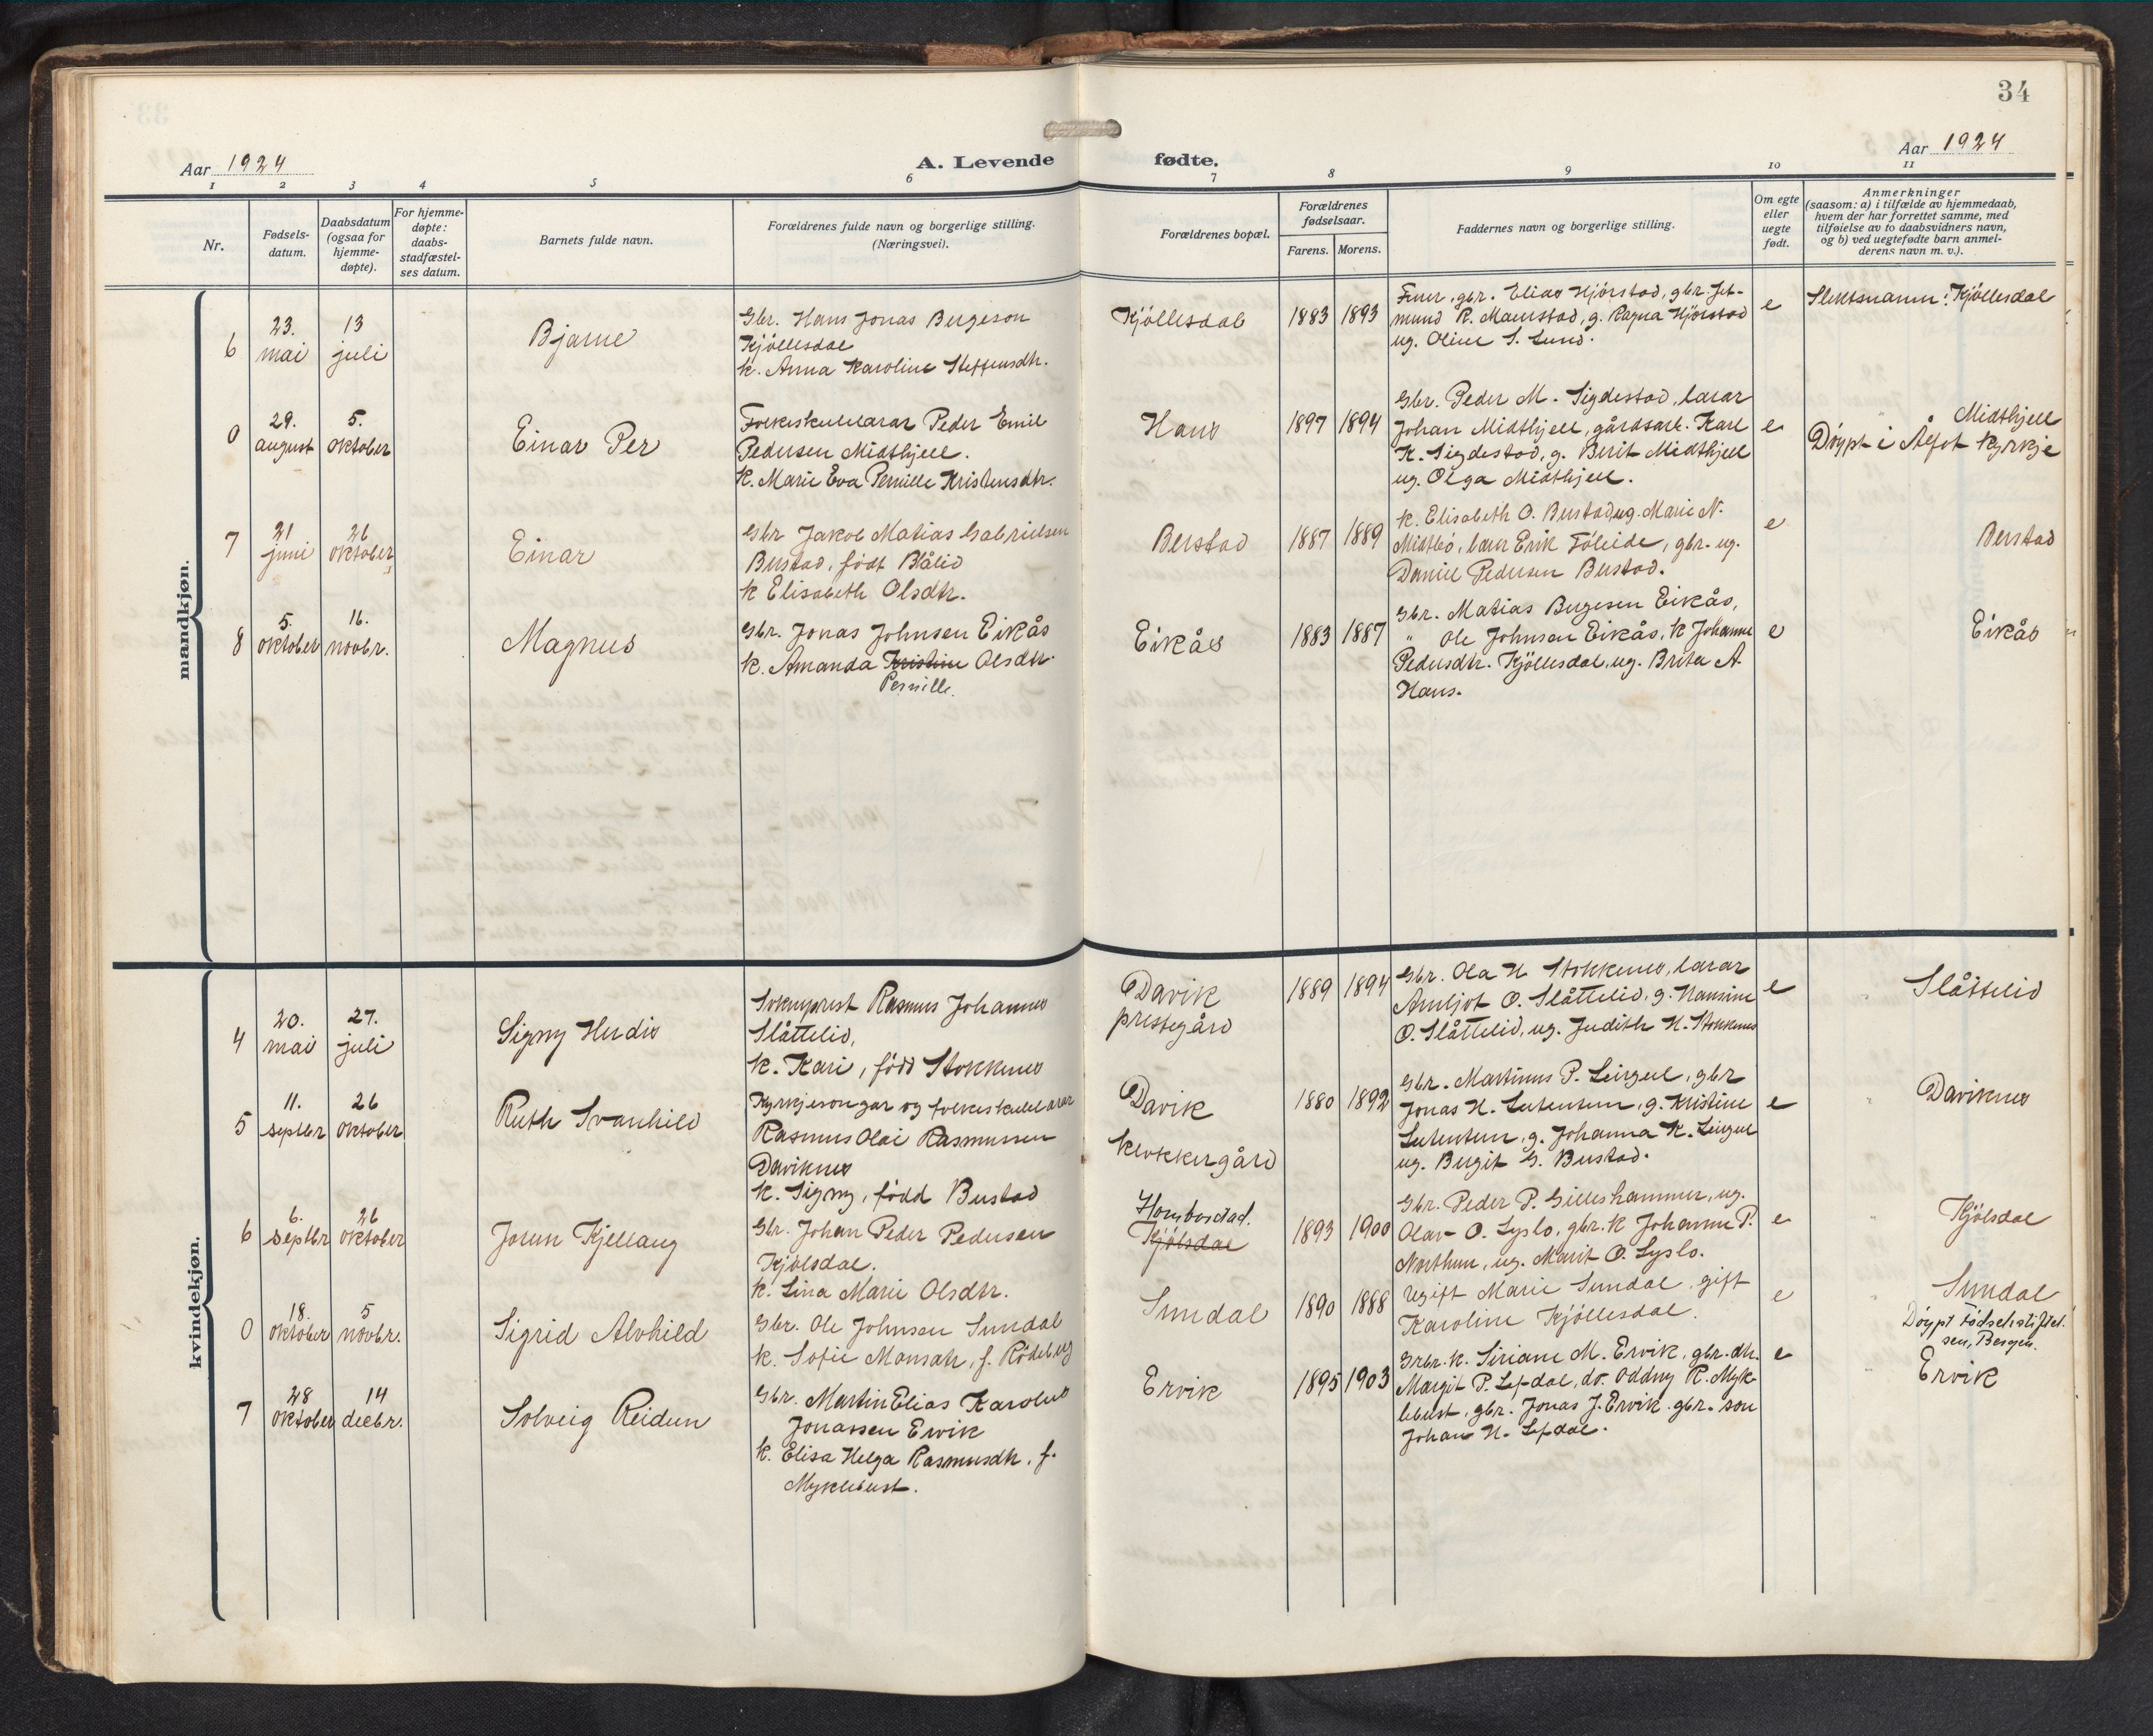 34
Aar 1924
A. Levende fødte.
Aar 1924
1 2 3 4 5 6 7 8 9 10 11
Nr.
Fødsels-
datum.
Daabsdatum
(ogsaa for
hjemme-
døpte).
For hjemme-
døpte:
daabs-
stadfæstel-
ses datum.
Barnets fulde navn.
Forældrenes fulde navn og borgerlige stilling.
(Næringsvei).
Forældrenes bopæl.
Forældrenes
fødselsaar.
Farens. Morens.
Faddernes navn og borgerlige stilling.
Om egte
eller
uegte
født.
Anmerkninger
(saasom: a) i tilfælde av hjemmedaab,
hvem der har forrettet samme, med
tilføielse av to daabsvidners navn,
og b) ved uegtefødte barn anmel-
derens navn m. v.).
mandkjøn.
6
23.
mai
13
juli
Bjarne
Gbr. Hans Jonas Bergeson
Kjöllesdal
k. Anna Karoline Steffensdtr.
Kjöllesdal
1883 1893
gbr. Elias Hjörstad, gbr. Jet-
mund R. Maurstad, g. Ragna Hjörstad
ug. Oline S. Lund.
e
Slektsnamn: Kjöllesdal
0
29.
august
5.
oktober
Einar Per
Folkeskulelærar Peder Emil
Pedersen Midthjell.
k. Marie Eva Pernille Kristensdtr.
Haus
1897 1894
Gbr. Peder M. Sigdestad, lærar
Johan Midthjell, gårdsarb. Karl
K. Sigdestad, g. Berit Midthjell
ug. Olga Midthjell.
e
" Midthjell
Döypt i Ålfot kyrkje
7
21
juni
26
oktober
Einar
Gbr Jakob Matias Gabrielsen
Berstad, född Blålid
k Elisabeth Olsdtr.
Berstad
1887 1889
k. Elisabeth O. Berstad ug. Marie N.
Midtbö, lærer Erik Föleide, gbr. ug.
Daniel Pedersen Berstad.
e
Berstad
8
5.
oktober
16.
novbr.
Magnus
Gbr. Jonas Johnsen Eikås
k. Amanda Kristine Olsdtr.
Pernille.
Eikås
1883 1887
Gbr. Matias Bergesen Eikås,
" Ole Johnsen Eikås, k Johanne
Pedersdtr. Kjöllesdal, ug. Brita A.
Haus.
e
Eikås
kvindekjøn.
4
20.
mai
27.
juli
Signy Herdis
Sokneprest Rasmus Johannes
Slåttelid,
k. Kari, född Stokknes
Davik
prestegård
1889 1894
Gbr. Ola N Stokknes, lærar
Arnljot O. Slåttelid, g. Hansine
O. Slåttelid, ug. Judith N. Stokknes
e
" Slåttelid
5
11.
septbr
26
oktober
Ruth Svanhild
Kyrkjesongar og folkeskulelærar
Rasmus Olai Rasmussen
Daviknes
k. Signy, född Berstad
Davik
klokkergård
1880 1892
Gbr. Martinus P. Leirgul, gbr
Jonas N. g. Kristine
g. Johanna K. Leirgul
ug. Bergit G. Berstad.
e
" Daviknes
6
6.
septbr
26
oktober
Jorun Kjellaug
Gbr. Johan Peder Pedersen
Kjölsdal.
k. Lina Marie Olsdtr.
Hombostad.
Kjölsdal
1893 1900
Gbr. Peder P. Gilleshammer, ug.
Olav O. Lyslo, gbr. k Johanne P.
Northun, ug. Marit O. Lyslo.
e
" Kjölsdal
0
18.
oktober
5
novbr.
Sigrid Alvhild
Gbr. Ole Johnsen Sundal
k. Sofie Monsdtr, f. Rödeberg
Sundal
1890 1888
Ugift Marie Sundal, gift
Karoline Kjöllesdal.
e
" Sundal
Döypt Födselsstiftel.
sen, Bergen.
7
28
oktober
14
decbr.
Solveig Reidun
Gbr. Martin Elias Karolus
Jonassen Ervik
k. Elisa Helga Rasmusdtr. f.
Myklebust.
Ervik
1895 1903
Grbr. k. Siriane M. Ervik, gbr. dtr.
Margit P. Lefdal, do. Oddny R. Myk-
lebust, gbr. Jonas J. Ervik gbr. son
Johan N. Lefdal.
e
Ervik